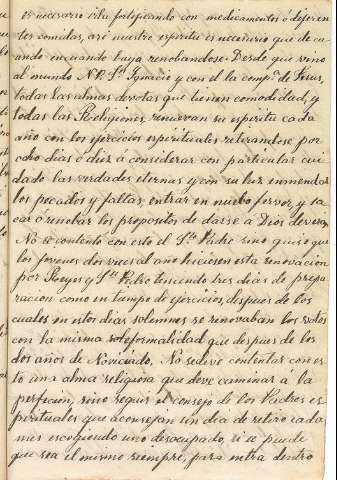 es necesario irla fortificando con medicamentos ó diferen
tes comidas, así nuestro espíritu es necesario que de cu
ando en cuando baya renobandose. Desde que vino
al mundo N. P. Sn. Ignacio y con el la compª. de Jesus,
todas las almas devotas que tienen comodidad, y
todas las Religiones, renuevan su espíritu cada
año con los ejercicios espirituales retirandose por
ocho días ó diez á considerar con particular cui
dado las verdades eternas y con su luz enmendar
los pecados y faltas, entrar en nuebo fervor, y sa
car ó renobar los propositos de darse á Dios deveras.
No se contentó con esto el Sto. Padre sino quiso que
los jovenes dos veces al año hiciesen esta renovacion
por Reyes y Sn. Pedro teniendo tres días de prepa
racion como en tiempo de ejercicios, despues de los
cuales en estos días solemnes se renovaban los votos
con la misma formalidad que despues de los
dos años de Noviciado. No se deve contentar con es
to una alma religiosa que deve caminar á la
perfeccion, sino seguir el consejo de los Padres es
pirituales que aconsejan un dia de retiro cada
mes escogiendo uno desocupado, si se puede
que sea el mismo siempre, para entrar dentro